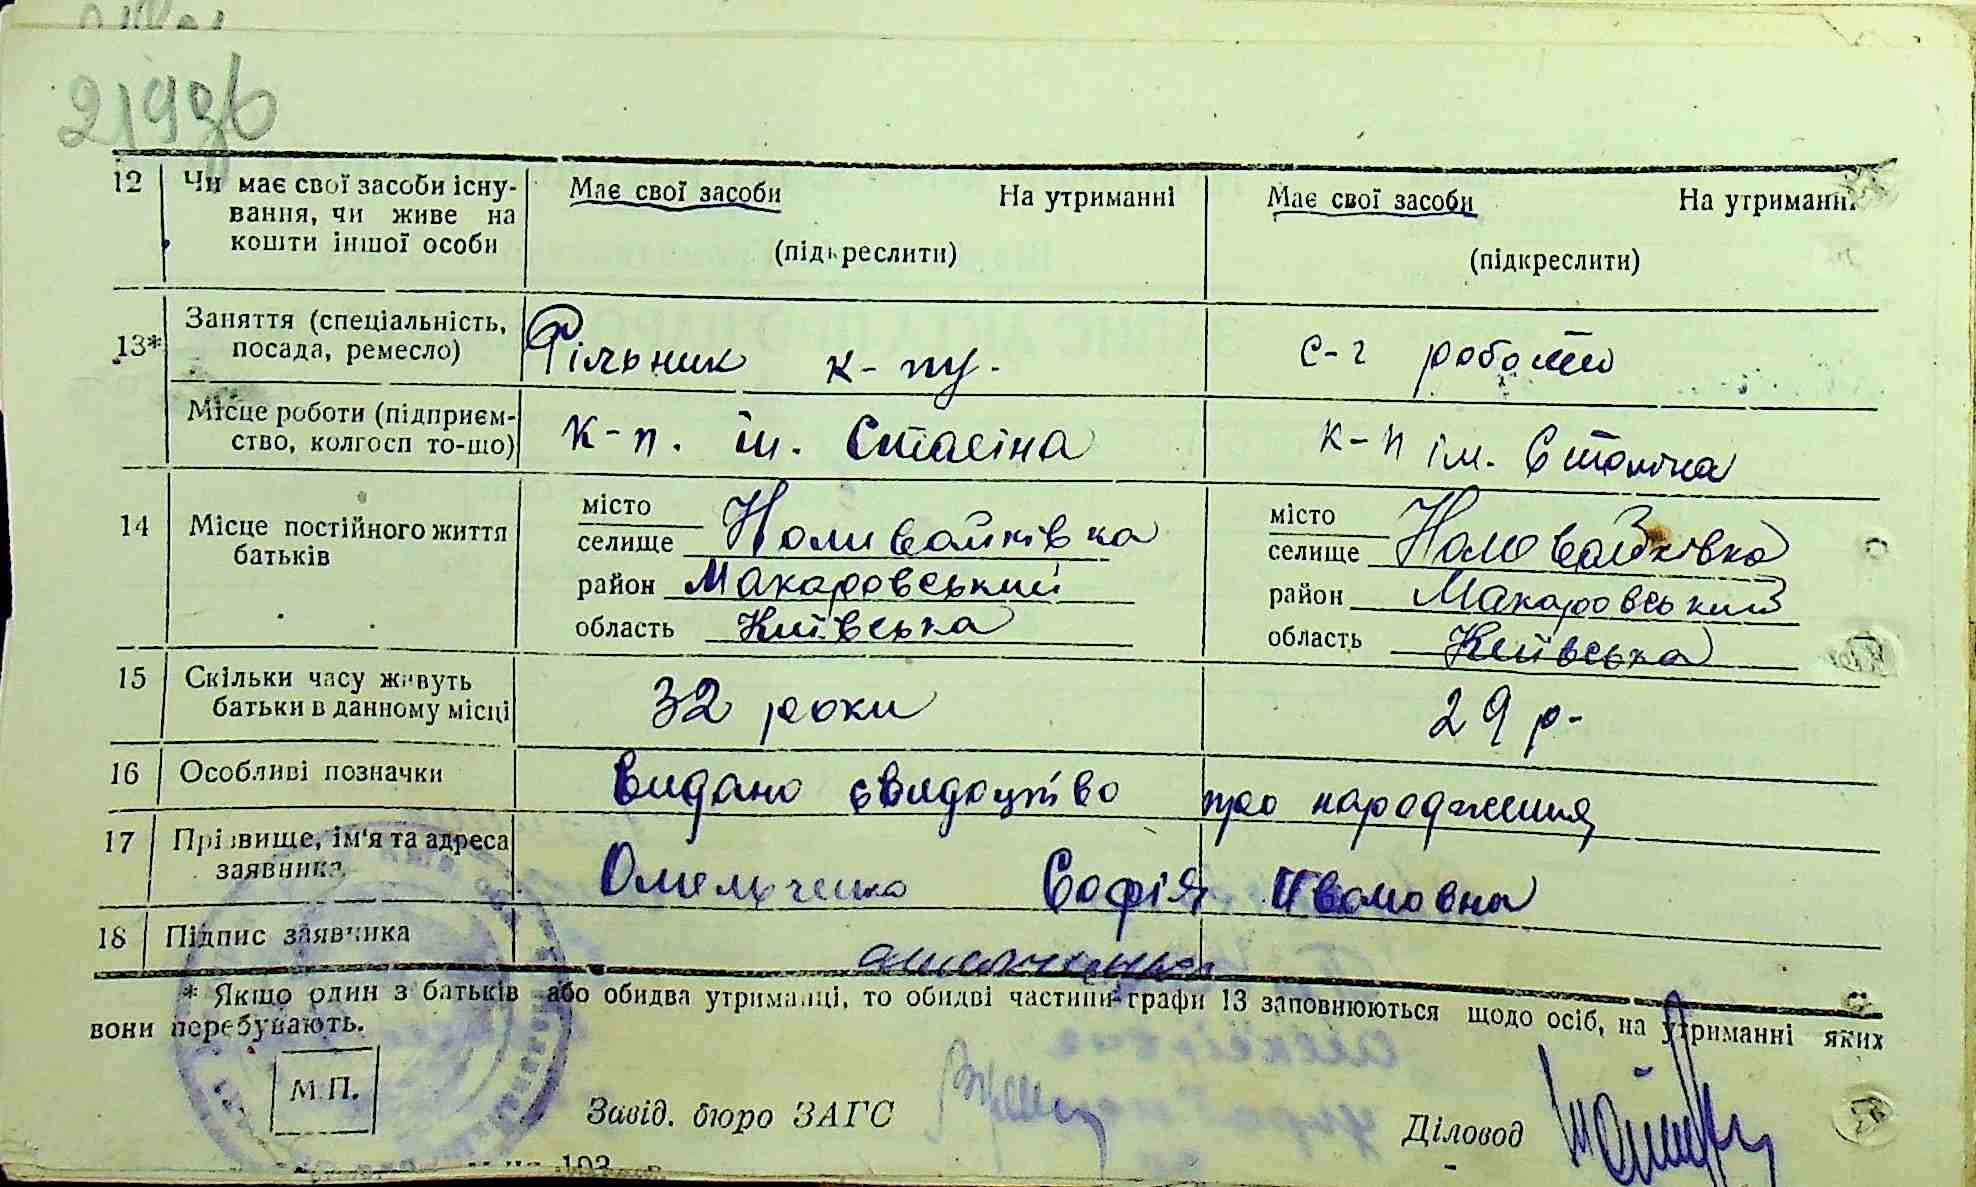 12 Чи має свої засоби існу- Має свої засоби На утриманні Має свої засоби На утриманн
вання, чи живе на
кошти іншої особи (підкреслити) (підкреслити)
13* Заняття (спеціальність, Рільник к-пу. с-г робота
посада, ремесло)
Місце роботи (підприєм- к-п. ім. Сталіна к-п ім. Сталіна
ство, колгосп то-що)
14 Місце постійного життя місто місто
батьків селище Наливайківка селище Наливайківка
район Макаровський район Макаровський
область Київська область Київська
15 Скільки часу живуть 32 роки 29 р-
батьки в данному місці
16 Особливі позначки Видано свидоцтво про народження
17 Прізвище, ім'я та адреса Омельченко Софія Ивановна
заявника
18 Підпис заявника
* Якщо один з батьків або обидва утриманці, то обидві частини графи 13 заповнюються щодо осіб, на утриманні яких
вони перебувають.
М.П.
Завід. бюро ЗАГС Діловод